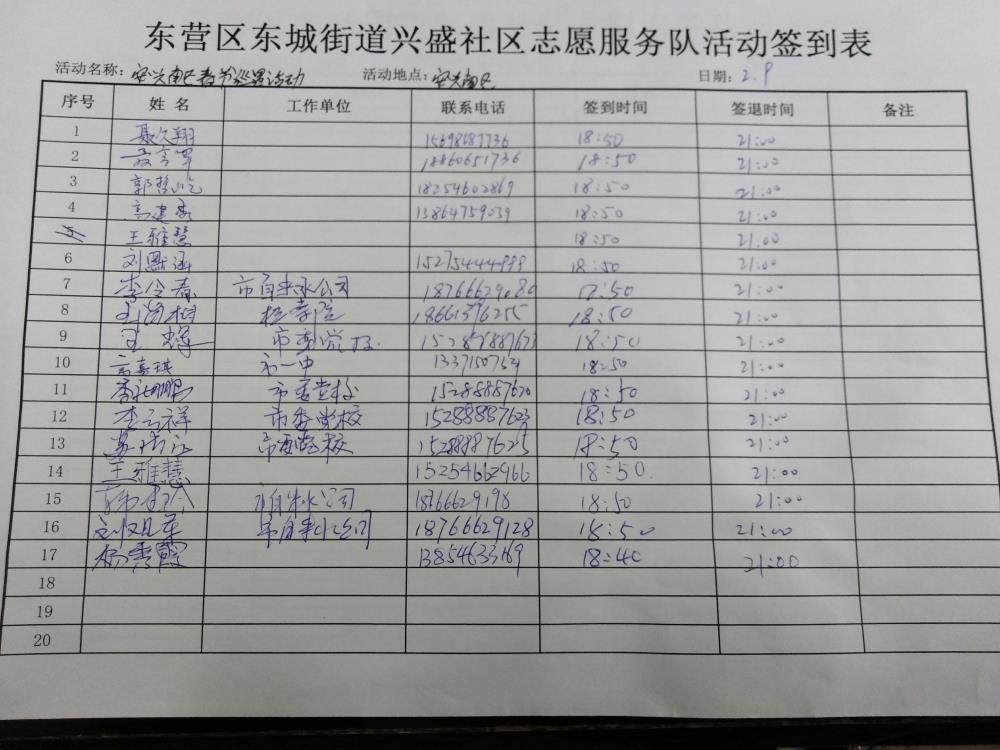 东营区东城街道兴盛社区志愿服务队活动签到表
活动名称：安兴南区春节巡逻活动 活动地点：安兴南区 日期：2.9
序号 姓名 工作单位 联系电话 签到时间 签退时间 备注
1 聂久翔 18:50 21:00
2 18860651736 18:50 21:00
3 郭 18254602869 18:50 21:00
4 高建 13864759039 18:50 21:00
5 王雅慧 18:50 21:00
6 刘默涵 15275444999 18:50 21:00
7 李令春 市自来水公司 18766629080 17:50 21:00
8 18:50 21:00
9 王 市委党校 18:50 21:00
10 高嘉琪 市一中 18:50 21:00
11 李 市委党校 15288887620 18:50 21:00
12 李云祥 市委党校 15288887623 18:50 21:00
13 市委党校 15288887625 18:50 21:00
14 王雅慧 15254662966 18:50 21:00
15 市自来水公司 18:50 21:00
16 市自来水公司 18766629128 18:50 21:00
17 杨秀霞 13854633169 18:40 21:00
18
19
20